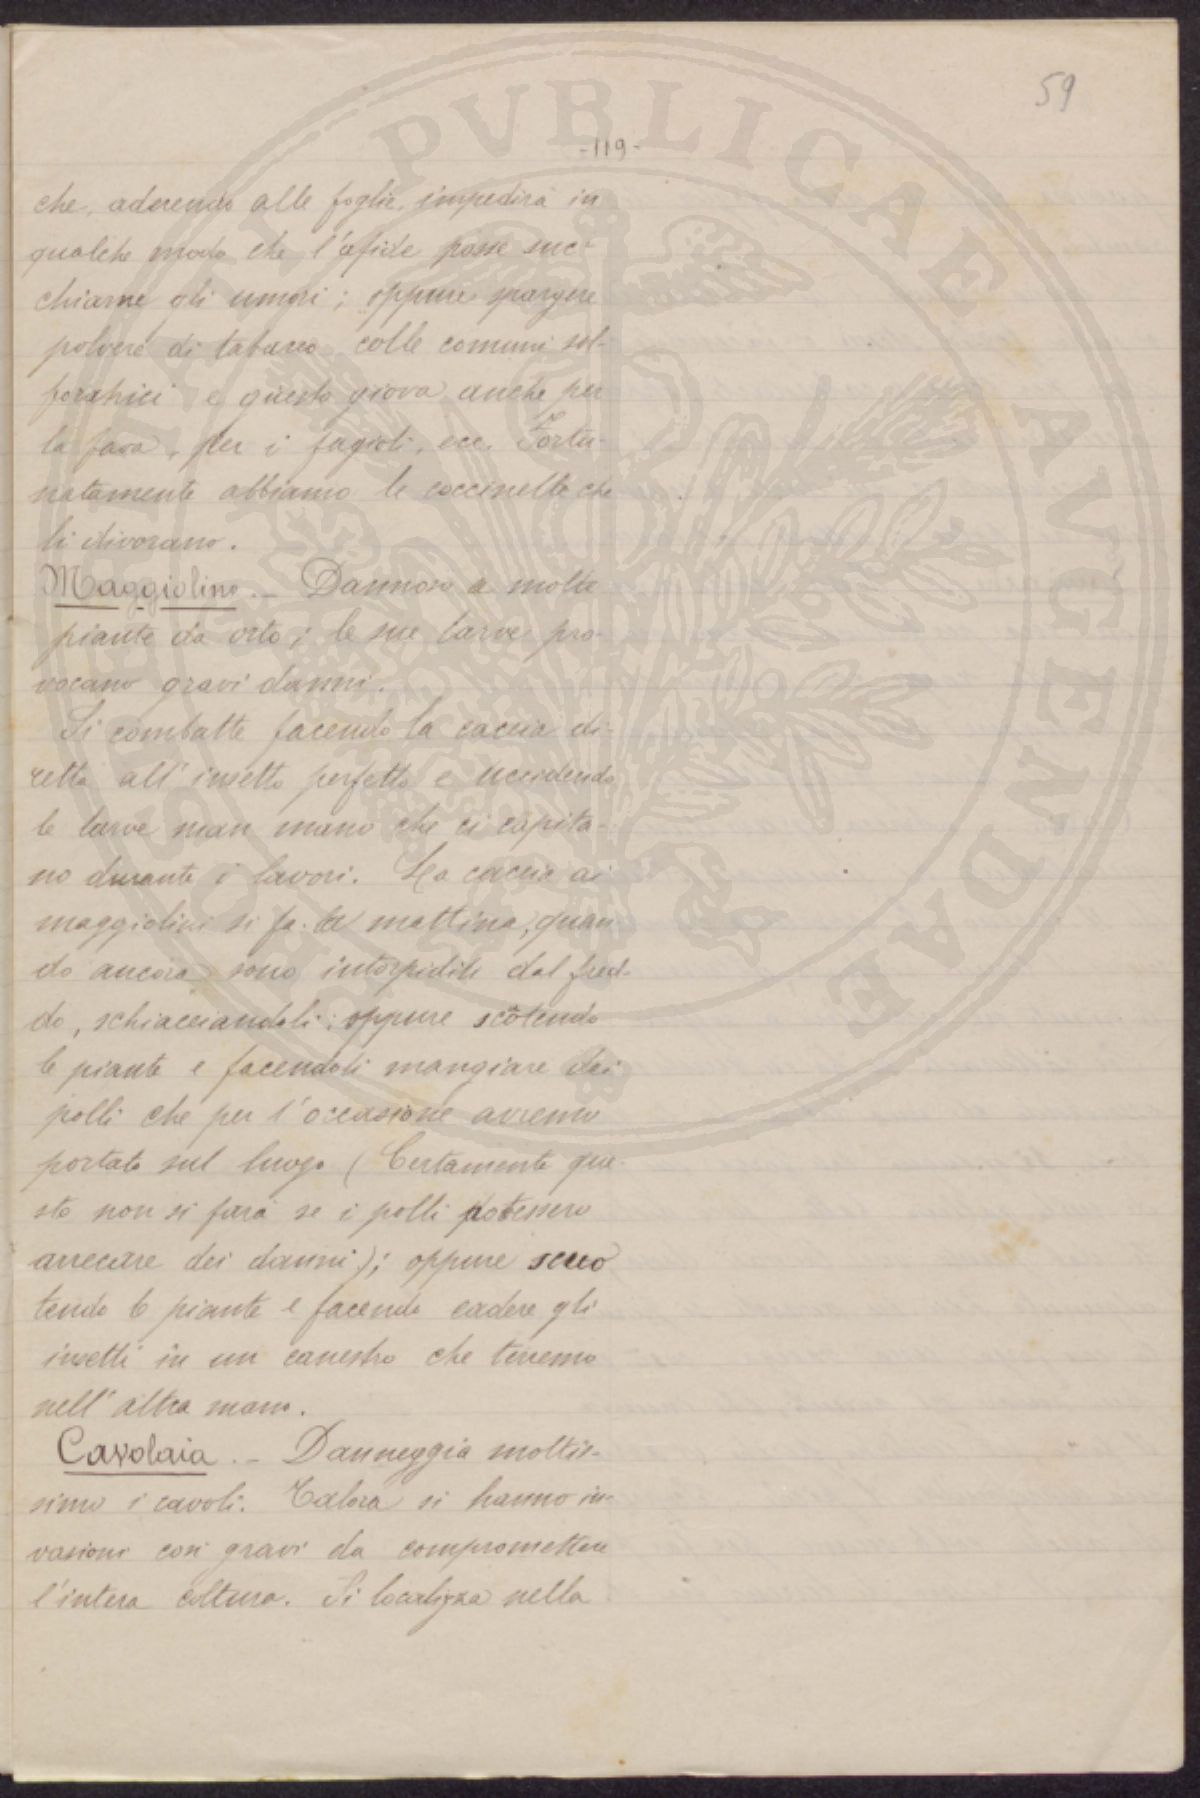 59
-119-
che, aderendo alle foglie, impedirà in
qualche modo che l'afide possa suc-
chiarne gli umori; oppure spargere
polvere di tabacco colle comuni sol-
foratrici e questo giova anche per
la fava, per i fagioli, ecc. Fortu-
natamente abbiamo le coccinelle che
li divorano.
Maggiolino.- Dannoso a molte
piante da orto; le sue larve pro-
vocano gravi danni.
Si combatte facendo la caccia di-
retta all'insetto perfetto e uccidendo
le larve man mano che ci capita-
no durante i lavori. La caccia ai
maggiolini si fa la mattina, quan-
do ancora sono intorpiditi dal fred-
do, schiacciandoli; oppure scotendo
le piante e facendoli mangiare dai
polli che per l'occasione avremo
portato sul luogo (Certamente que-
sto non si farà se i polli potessero
arrecare dei danni); oppure scuo
tendo le piante e facendo cadere gli
insetti in un canestro che terremo
nell'altra mano.
Cavolaia.- Danneggia moltis-
simo i cavoli. Talora si hanno in-
vasioni così gravi da compromettere
l'intera coltura. Si localizza nella
PVBLICAE AVGENDAE